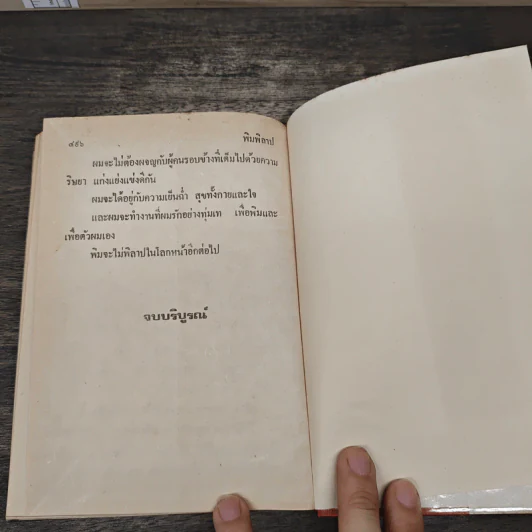 ๘๙๖ พิมพิลาป
ผมจะไม่ต้องผจญกับผู้คนรอบข้างที่เต็มไปด้วยความ
ริษยา แก่งแย่งแข่งดีกัน
ผมจะได้อยู่กับความเย็นฉ่ำ สุขทั้งกายและใจ
และผมจะทำงานที่ผมรักอย่างทุ่มเท เพื่อพิมและ
เพื่อตัวผมเอง
พิมจะไม่พิลาปในโลกหน้าอีกต่อไป
จบบริบูรณ์